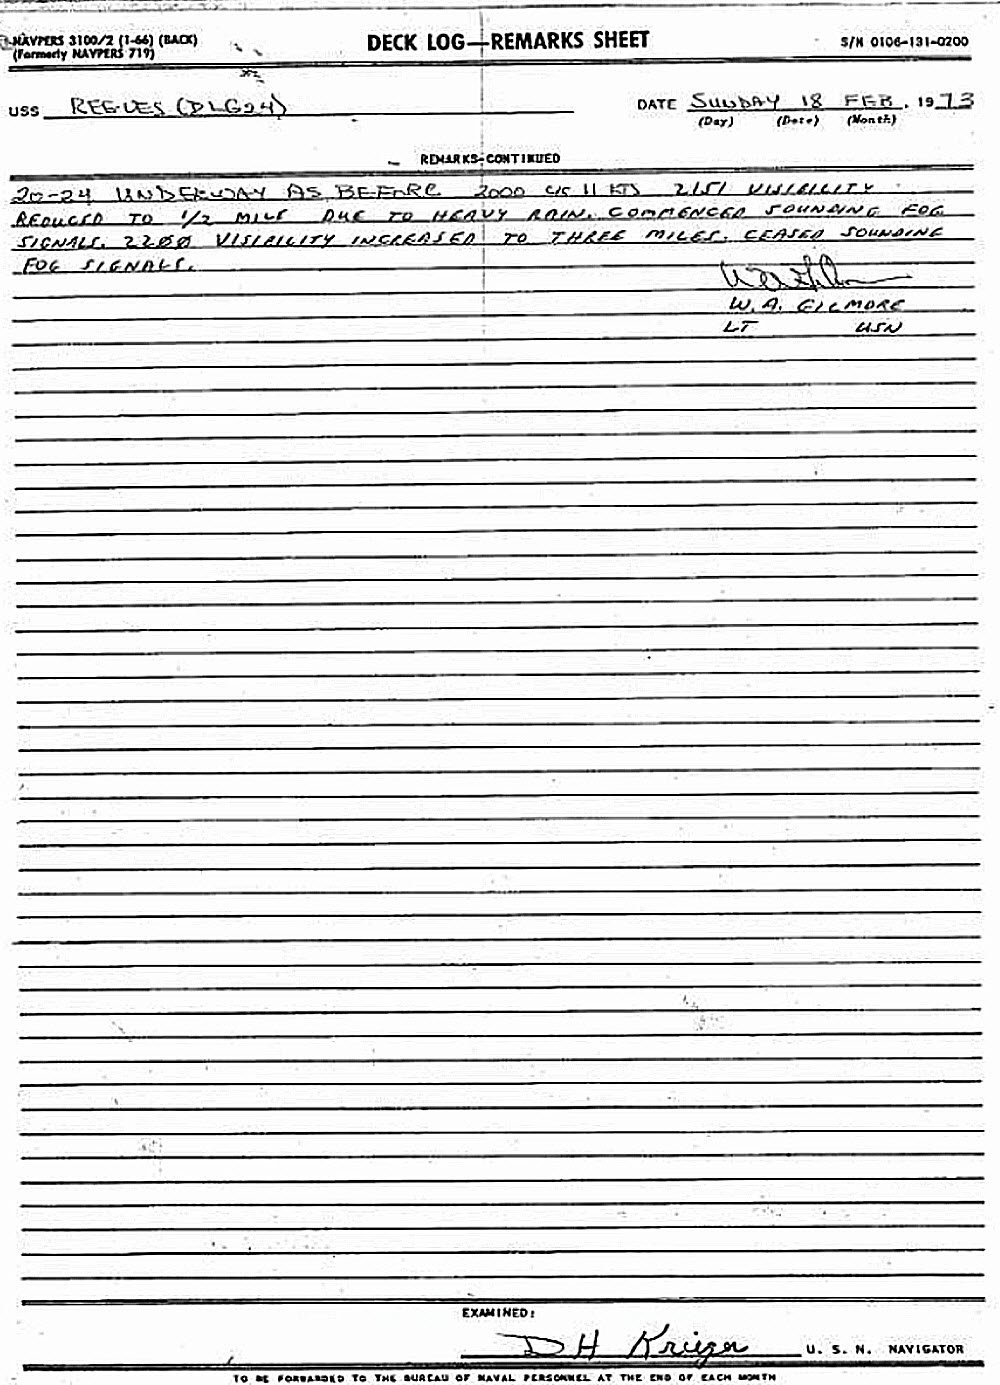 NAVPERS 3100/2 (1-66) (BACK)
(Formerly NAVPERS 719)
DECK LOG—REMARKS SHEET
S/N 0106-131-0200
USS REEVES (DLG24)
DATE SUNDAY 18 FEB, 1973
(Day) (Date) (Month)
REMARKS-CONTINUED
20-24 UNDERWAY AS BEFORE 2000 C/S 11 KTS 2151 VISIBILITY
REDUCED TO 1/2 MILE DUE TO HEAVY RAIN. COMMENCED SOUNDING FOG
SIGNALS. 2200 VISIBILITY INCREASED TO THREE MILES. CEASED SOUNDING
FOG SIGNALS.
W. A. GILMORE
LT USN
EXAMINED:
D H Krieger U. S. N. NAVIGATOR
TO BE FORWARDED TO THE BUREAU OF NAVAL PERSONNEL AT THE END OF EACH MONTH